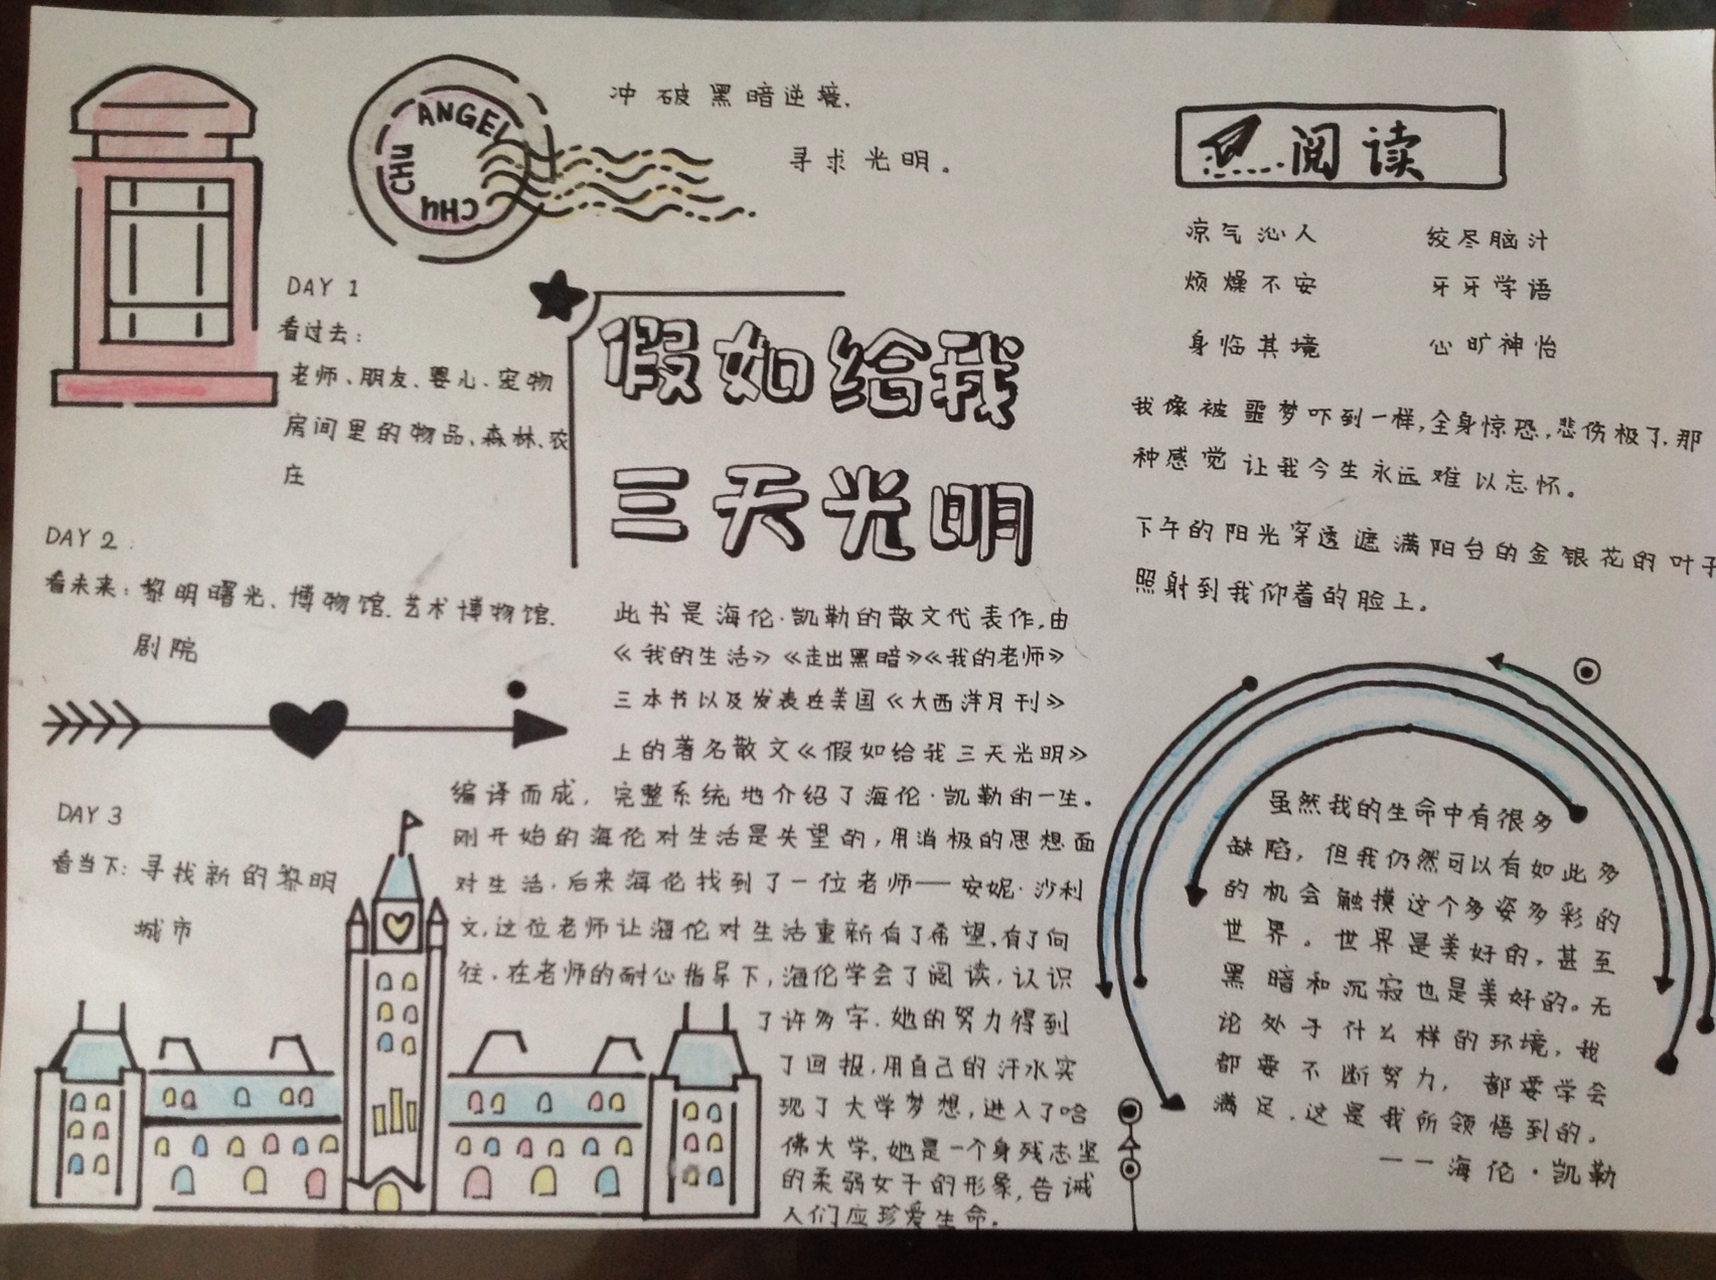 ANGEL
CHU
CHU
冲破黑暗逆境.
寻求光明。
DAY 1
看过去:
老师、朋友、婴儿、宠物
房间里的物品、森林、农
庄
DAY 2
看未来:黎明曙光、博物馆、艺术博物馆.
剧院
DAY 3
看当下:寻找新的黎明
城市
假如给我
三天光明
此书是海伦·凯勒的散文代表作,由
《我的生活》《走出黑暗》《我的老师》
三本书以及发表在美国《大西洋月刊》
上的著名散文《假如给我三天光明》
编译而成,完整系统地介绍了海伦·凯勒的一生。
刚开始的海伦对生活是失望的,用消极的思想面
对生活.后来海伦找到了一位老师——安妮·沙利
文,这位老师让海伦对生活重新有了希望、有了向
往.在老师的耐心指导下,海伦学会了阅读,认识
了许多字.她的努力得到
了回报.用自己的汗水实
现了大学梦想,进入了哈
佛大学,她是一个身残志坚
的柔弱女子的形象,告诫
人们应珍爱生命。
阅读
凉气沁人 绞尽脑汁
烦燥不安 牙牙学语
身临其境 心旷神怡
我像被噩梦吓到一样,全身惊恐,悲伤极了.那
种感觉让我今生永远难以忘怀。
下午的阳光穿透遮满阳台的金银花的叶子
照射到我仰着的脸上。
虽然我的生命中有很多
缺陷,但我仍然可以有如此多
的机会触摸这个多姿多彩的
世界。世界是美好的,甚至
黑暗和沉寂也是美好的。无
论处于什么样的环境,我
都要不断努力,都要学会
满足.这是我所领悟到的。
——海伦·凯勒